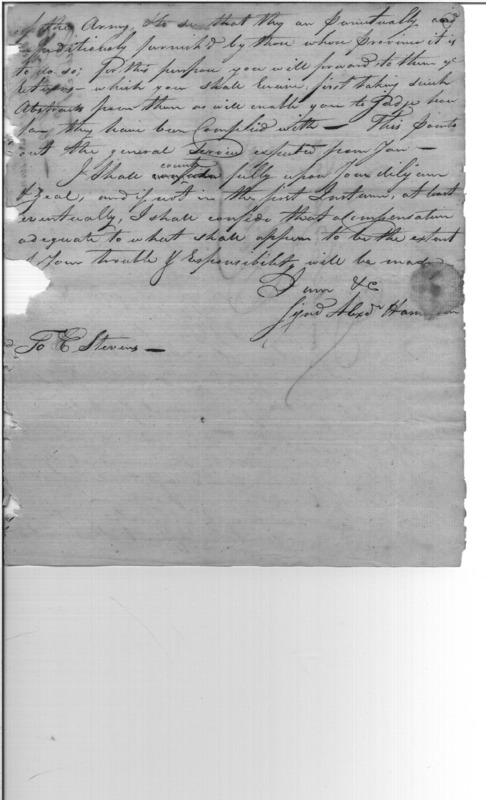 of the Army, & to see that they are Punctually and
expeditiously furnish'd by those whose Province it is
to do so; For this purpose you will forward to them ye
returns which you shall receive, first taking such
Abstracts from them as will enable you to Judge how
far they have been Complied with — This Points
out the general Service expected from You —
I Shall count fully upon Your diligence
& Zeal, and if not in the first Instance, at least
eventually, I shall confide that a Compensation
adequate to what shall appear to be the extent
of Your trouble & Responsibility will be made
I am &c
Signd Alexdr Hamilton
To E Stevens —